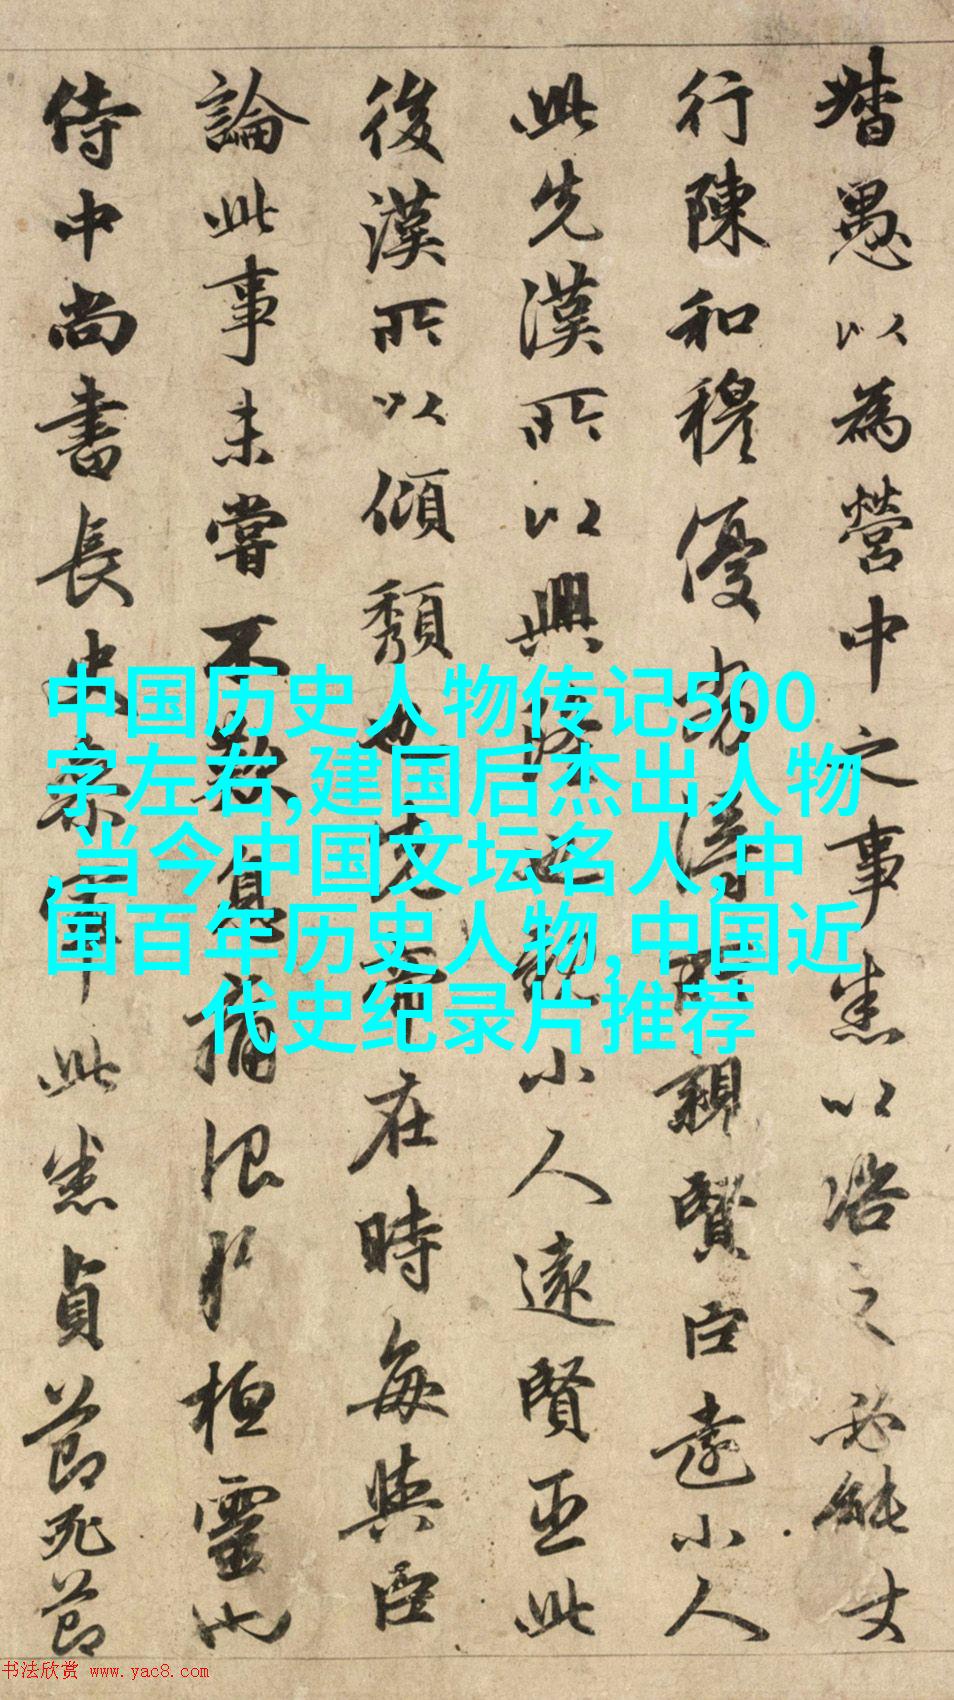 督愚以為營中之事悉以咨之必能丈
行陳和穆優劣得所親賢臣遠小人
此先漢所以興隆也親小人遠賢臣此
後漢所以傾頹也先帝在時每與臣
論此事未嘗不歎息痛恨於桓靈也
侍中尚書長史參軍此悉貞節死節
中国历史人物传记500
字左右,建国后杰出人物
,当今中国文坛名人,中
国百年历史人物,中国近
代史纪录片推荐
书法欣赏 www.yac8.com